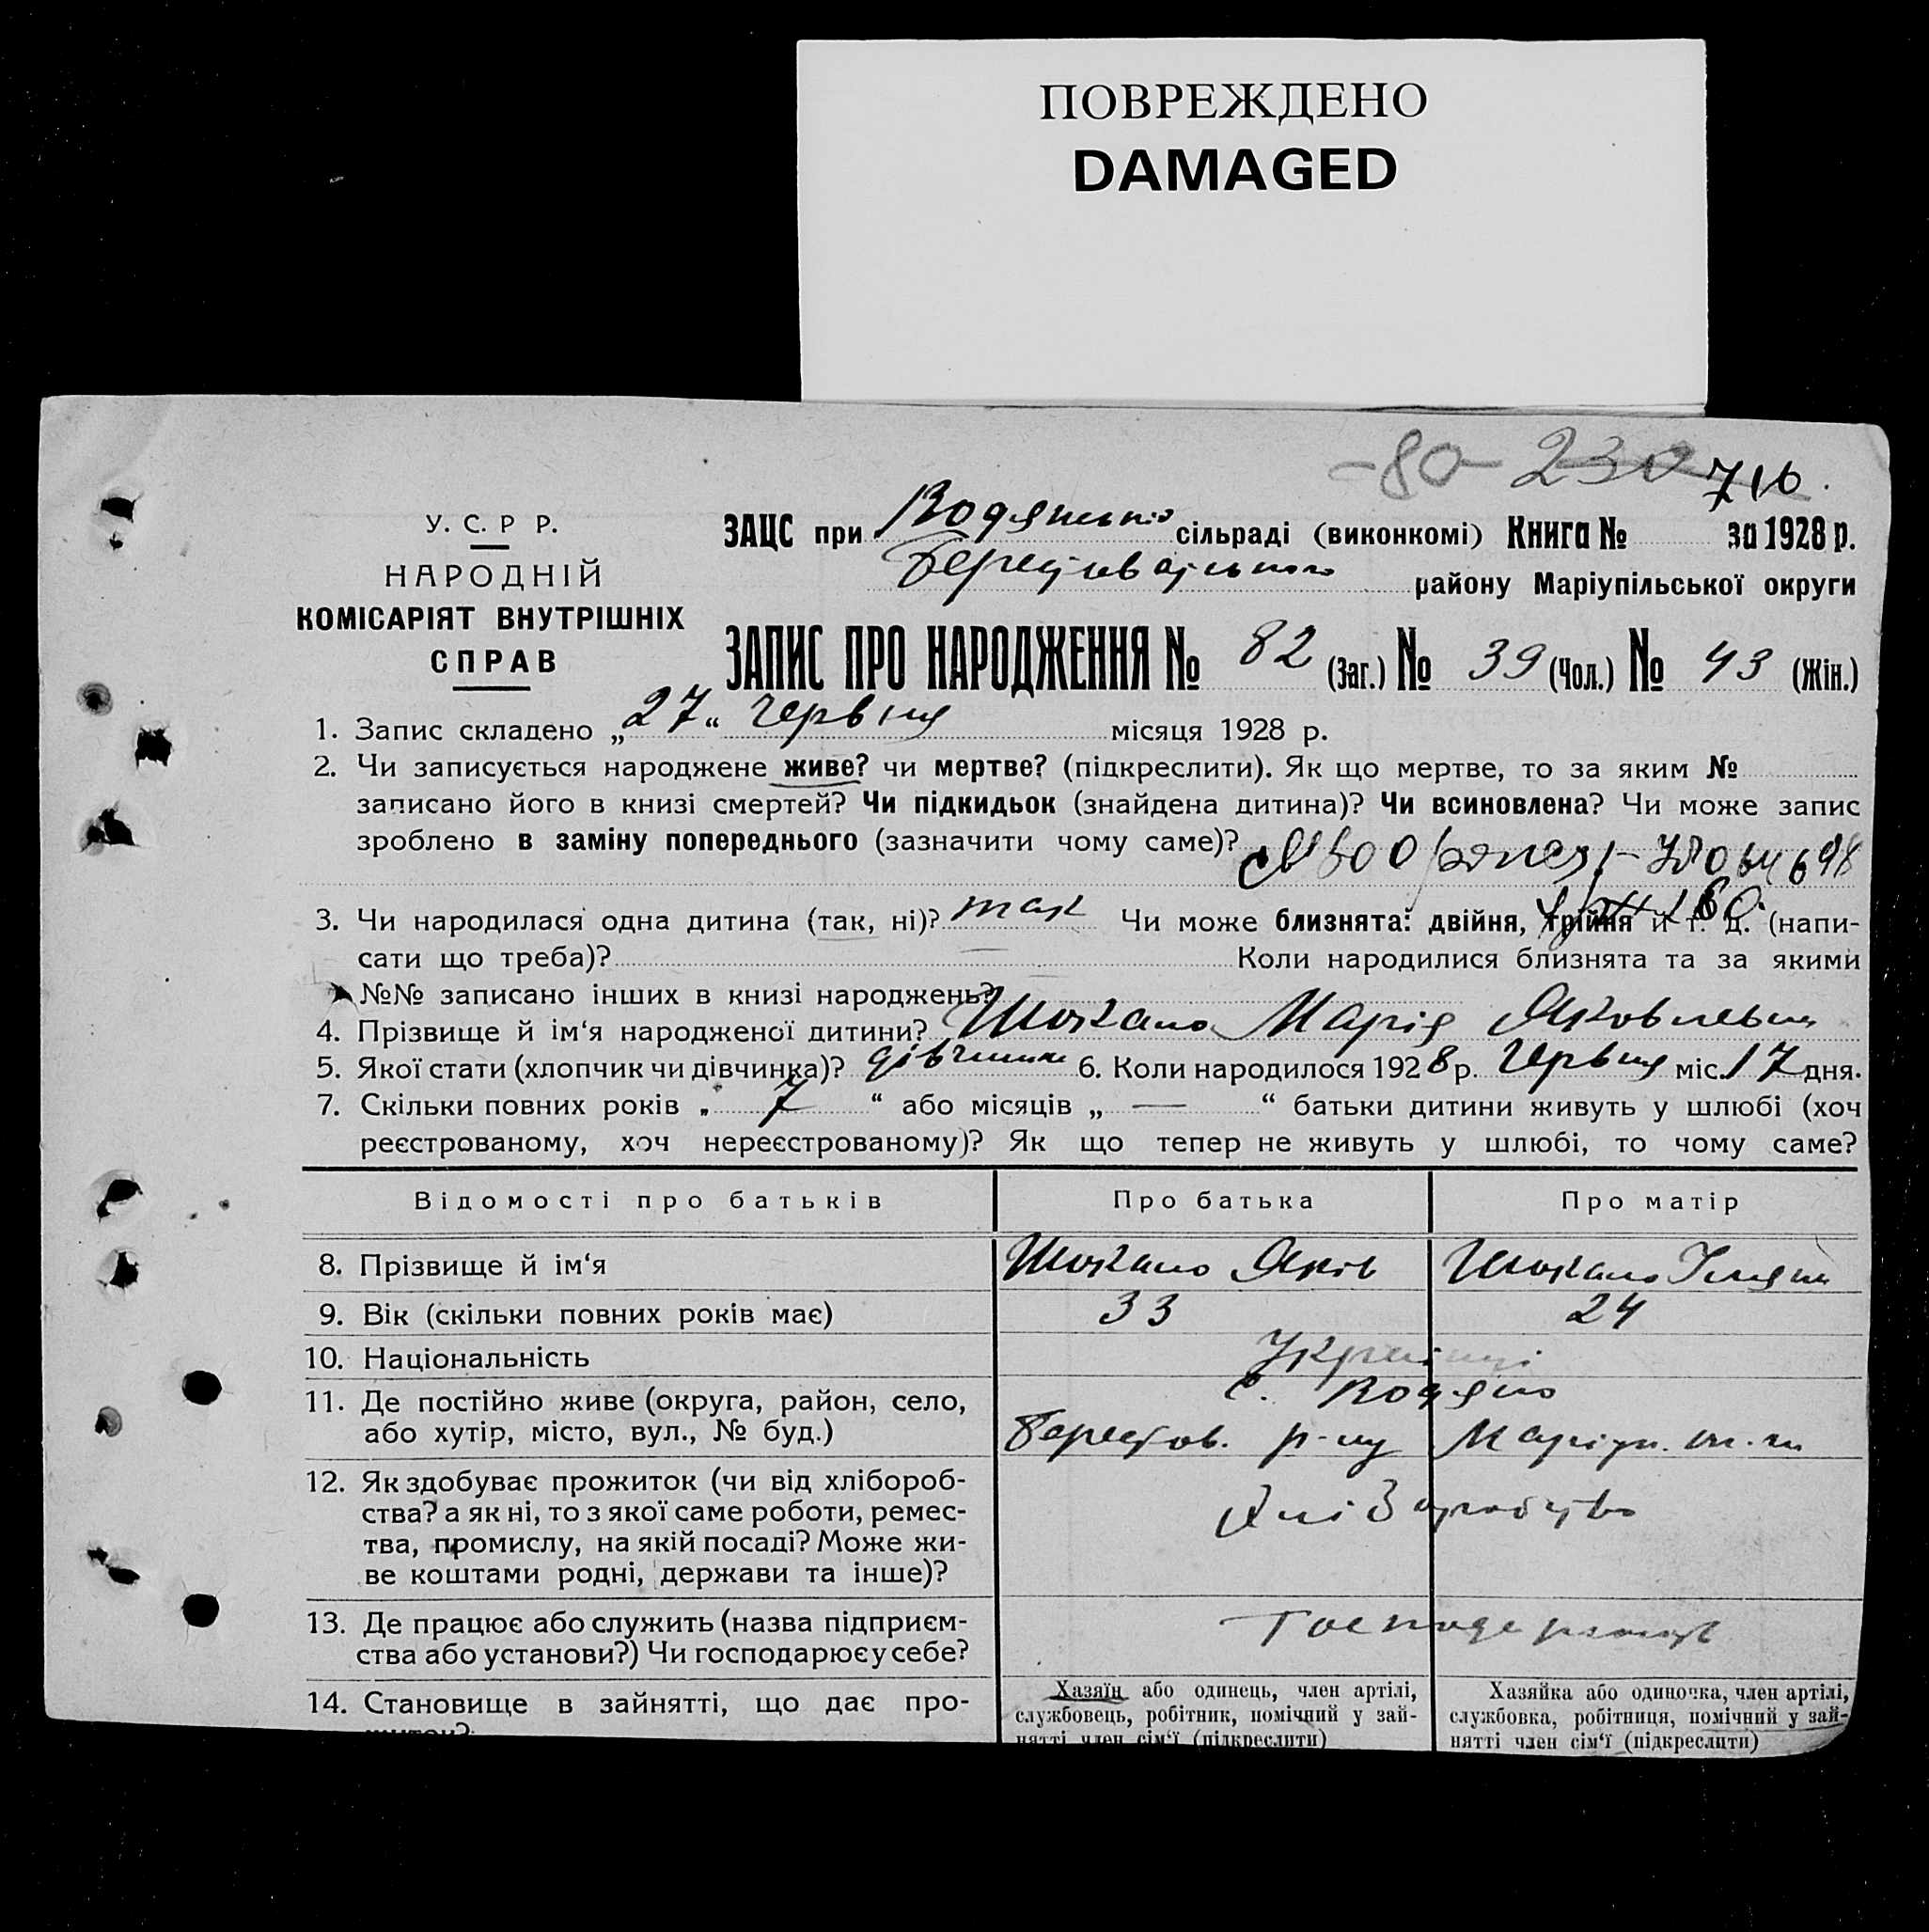 ПОВРЕЖДЕНО
DAMAGED
-80- 230 716.
У. С. Р Р.
НАРОДНІЙ
КОМІСАРІЯТ ВНУТРІШНІХ
СПРАВ
ЗАЦС при Водянській сільраді (виконкомі) Книга № за 1928 р.
району Маріупільської округи
ЗАПИС ПРО НАРОДЖЕННЯ № 82 (Заг.) № 39 (Чол.) № 43 (Жін.)
1. Запис складено „27“ червня місяця 1928 р.
2. Чи записується народжене живе? чи мертве? (підкреслити). Як що мертве, то за яким №
записано його в книзі смертей? Чи підкидьок (знайдена дитина)? Чи всиновлена? Чи може запис
зроблено в заміну попереднього (зазначити чому саме)?
3. Чи народилася одна дитина (так, ні)? так Чи може близнята: двійня, трійня й т. д. (напи-
сати що треба)? — Коли народилися близнята та за якими
№№ записано інших в книзі народжень?
4. Прізвище й ім‘я народженої дитини? Марія Яковлевна
5. Якої стати (хлопчик чи дівчинка)? дівчинка 6. Коли народилося 1928 р. червня міс. 17 дня.
7. Скільки повних років „ 7 “ або місяців „ — “ батьки дитини живуть у шлюбі (хоч
реєстрованому, хоч нереєстрованому)? Як що тепер не живуть у шлюбі, то чому саме?
Відомості про батьків Про батька Про матір
8. Прізвище й ім‘я Яків
9. Вік (скільки повних років має) 33 24
10. Національність Українці
11. Де постійно живе (округа, район, село, с. Водяно
або хутір, місто, вул., № буд.) Берестов. р-ну Маріуп.
12. Як здобуває прожиток (чи від хлібороб-
ства? а як ні, то з якої саме роботи, ремес-
тва, промислу, на якій посаді? Може жи-
ве коштами родні, держави та інше)?
13. Де працює або служить (назва підприєм-
ства або установи?) Чи господарює у себе?
14. Становище в зайнятті, що дає про-
житок?
Хазяїн або одинець, член артілі,
службовець, робітник, помічний у зай-
нятті член сім‘ї (підкреслити)
Хазяйка або одиночка, член артілі,
службовка, робітниця, помічний у зай-
нятті член сім‘ї (підкреслити)